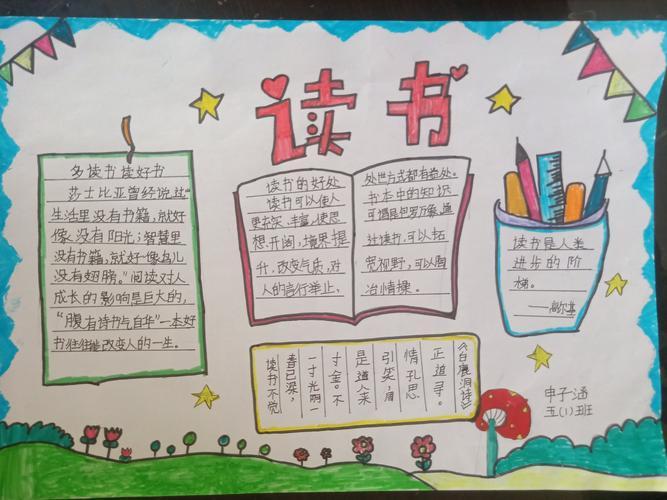 读书
多读书 读好书
莎士比亚曾经说过“
生活里没有书籍,就好
像没有阳光;智慧里
没有书籍,就好像鸟儿
没有翅膀。”阅读对人
成长的影响是巨大的,
“腹有诗书气自华”一本好
书往往能改变人的一生。
读书的好处
读书可以使人
更充实,丰富,使思
想开阔,境界提
升,改变气质,对
人的言行举止,
处世方式都有益处。
书本中的知识
可谓是包罗万象,通
过读书,可以拓
宽视野,可以陶
冶情操。
读书是人类
进步的阶
梯。
——高尔基
读书不觉
春已深,
一寸光阴一
寸金。不
是道人来
引笑,周
情孔思
正道寻。
《白鹿洞诗》
申子涵
五(1)班